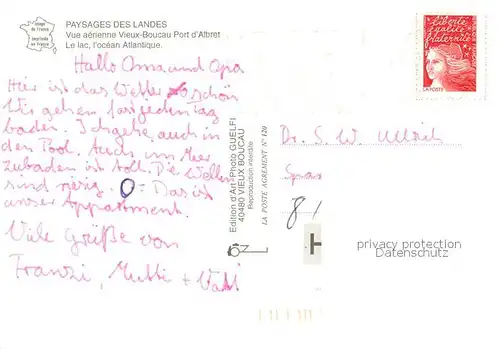 l'image
de France
Imprimée
en France
PAYSAGES DES LANDES
Vue aérienne Vieux-Boucau Port d'Albret
Le lac, l'océan Atlantique.
Hallo Oma und Opa
Hier ist das Wetter so schön
Wir gehen fast jeden Tag
baden. Ich gehe auch in
den Pool. Auch im Meer
zubaden ist toll. Die Wellen
sind riesig. O = Das ist
unser Appartment.
Viele Grüße von
Franzi, Mutti + Vati
Edition d'Art Photo GUELFI
40480 VIEUX BOUCAU
Reproduction interdite
LA POSTE AGREMENT N° 120
liberté
égalité
fraternité
LA POSTE
Dr. S. W. Ullrich
81
privacy protection
Datenschutz